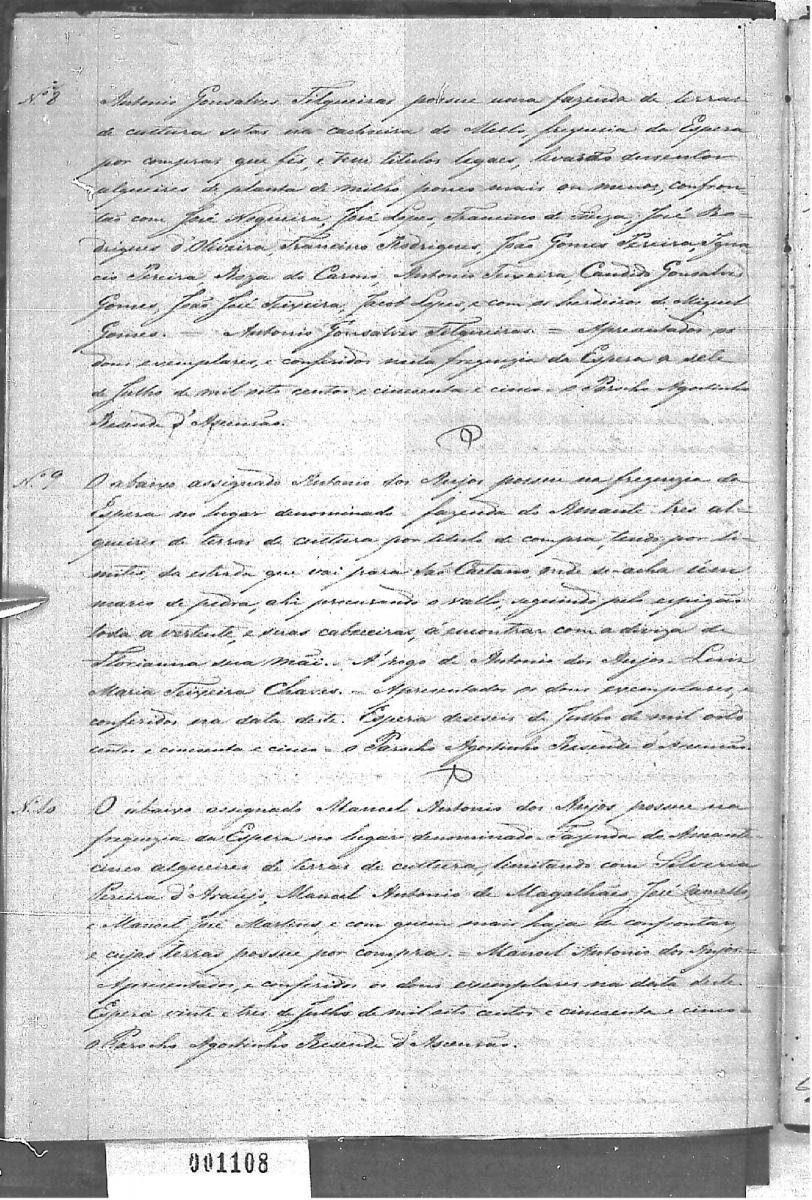 Nº 8 Antonio Gonsalves Filgueiras possue uma fazenda de terras
de cultura sitas na cachoeira do Mello, freguesia da Espera
por compras que fés, e tem titulos legaes, levarão dusentos
alqueires de planta de milho pouco mais ou menos, confron-
tão com José Nogueira, José Lopes, Francisco de Souza, José Ro-
drigues d'Oliveira, Francisco Rodrigues, João Gomes Pereira, Igna-
cio Pereira Roza do Carmo, Antonio Teixeira, Candido Gonsalves
Gomes, João José Teixeira, Jacob Lopes, e com os herdeiros de Miguel
Gomes. = Antonio Gonsalves Filgueiras. = Apresentados os
dous exemplares, e conferidos nesta freguezia da Espera a sete
de Julho de mil oito centos e cincoenta e cinco = o Parocho Agostinho
Resende d'Ascensão.
Nº 9 O abaixo assignado Antonio dos Anjos possue na freguezia da
Espera no lugar denominado - fazenda do Amante - tres al-
queires de terras de cultura por titulo de compra, tendo por li-
mites, da estrada que vai para São Caetano, onde se acha úm
marco de pedra, ahi procurando o vallo, seguindo pelo espigão
toda a vertente, e suas cabeceiras, á encontrar com a diviza de
Florianna sua mãi. - A rogo de Antonio dos Anjos - Luis
Maria Teixeira Chaves. - Apresentados os dous exemplares, e
conferidos na data deste. Espera deseseis de Julho de mil oito
centos e cincoenta e cinco - o Parocho Agostinho Resende d'Ascensão.
Nº 10 O abaixo assignado Manoel Antonio dos Anjos possue na
freguezia da Espera no lugar denominado - Fazenda do Amante -
cinco alqueires de terras de cultura, limitando com Silveria
Pereira d'Araujo, Manoel Antonio de Magalhães, José
e Manoel José Martins, e com quem mais haja de confrontar,
e cujas terras possue por compra. = Manoel Antonio dos Anjos =
Apresentados, e conferidos os dous exemplares na data deste
Espera vinte e tres de Julho de mil oito centos e cincoenta e cinco =
O Parocho Agostinho Resende d'Ascensão.
001108